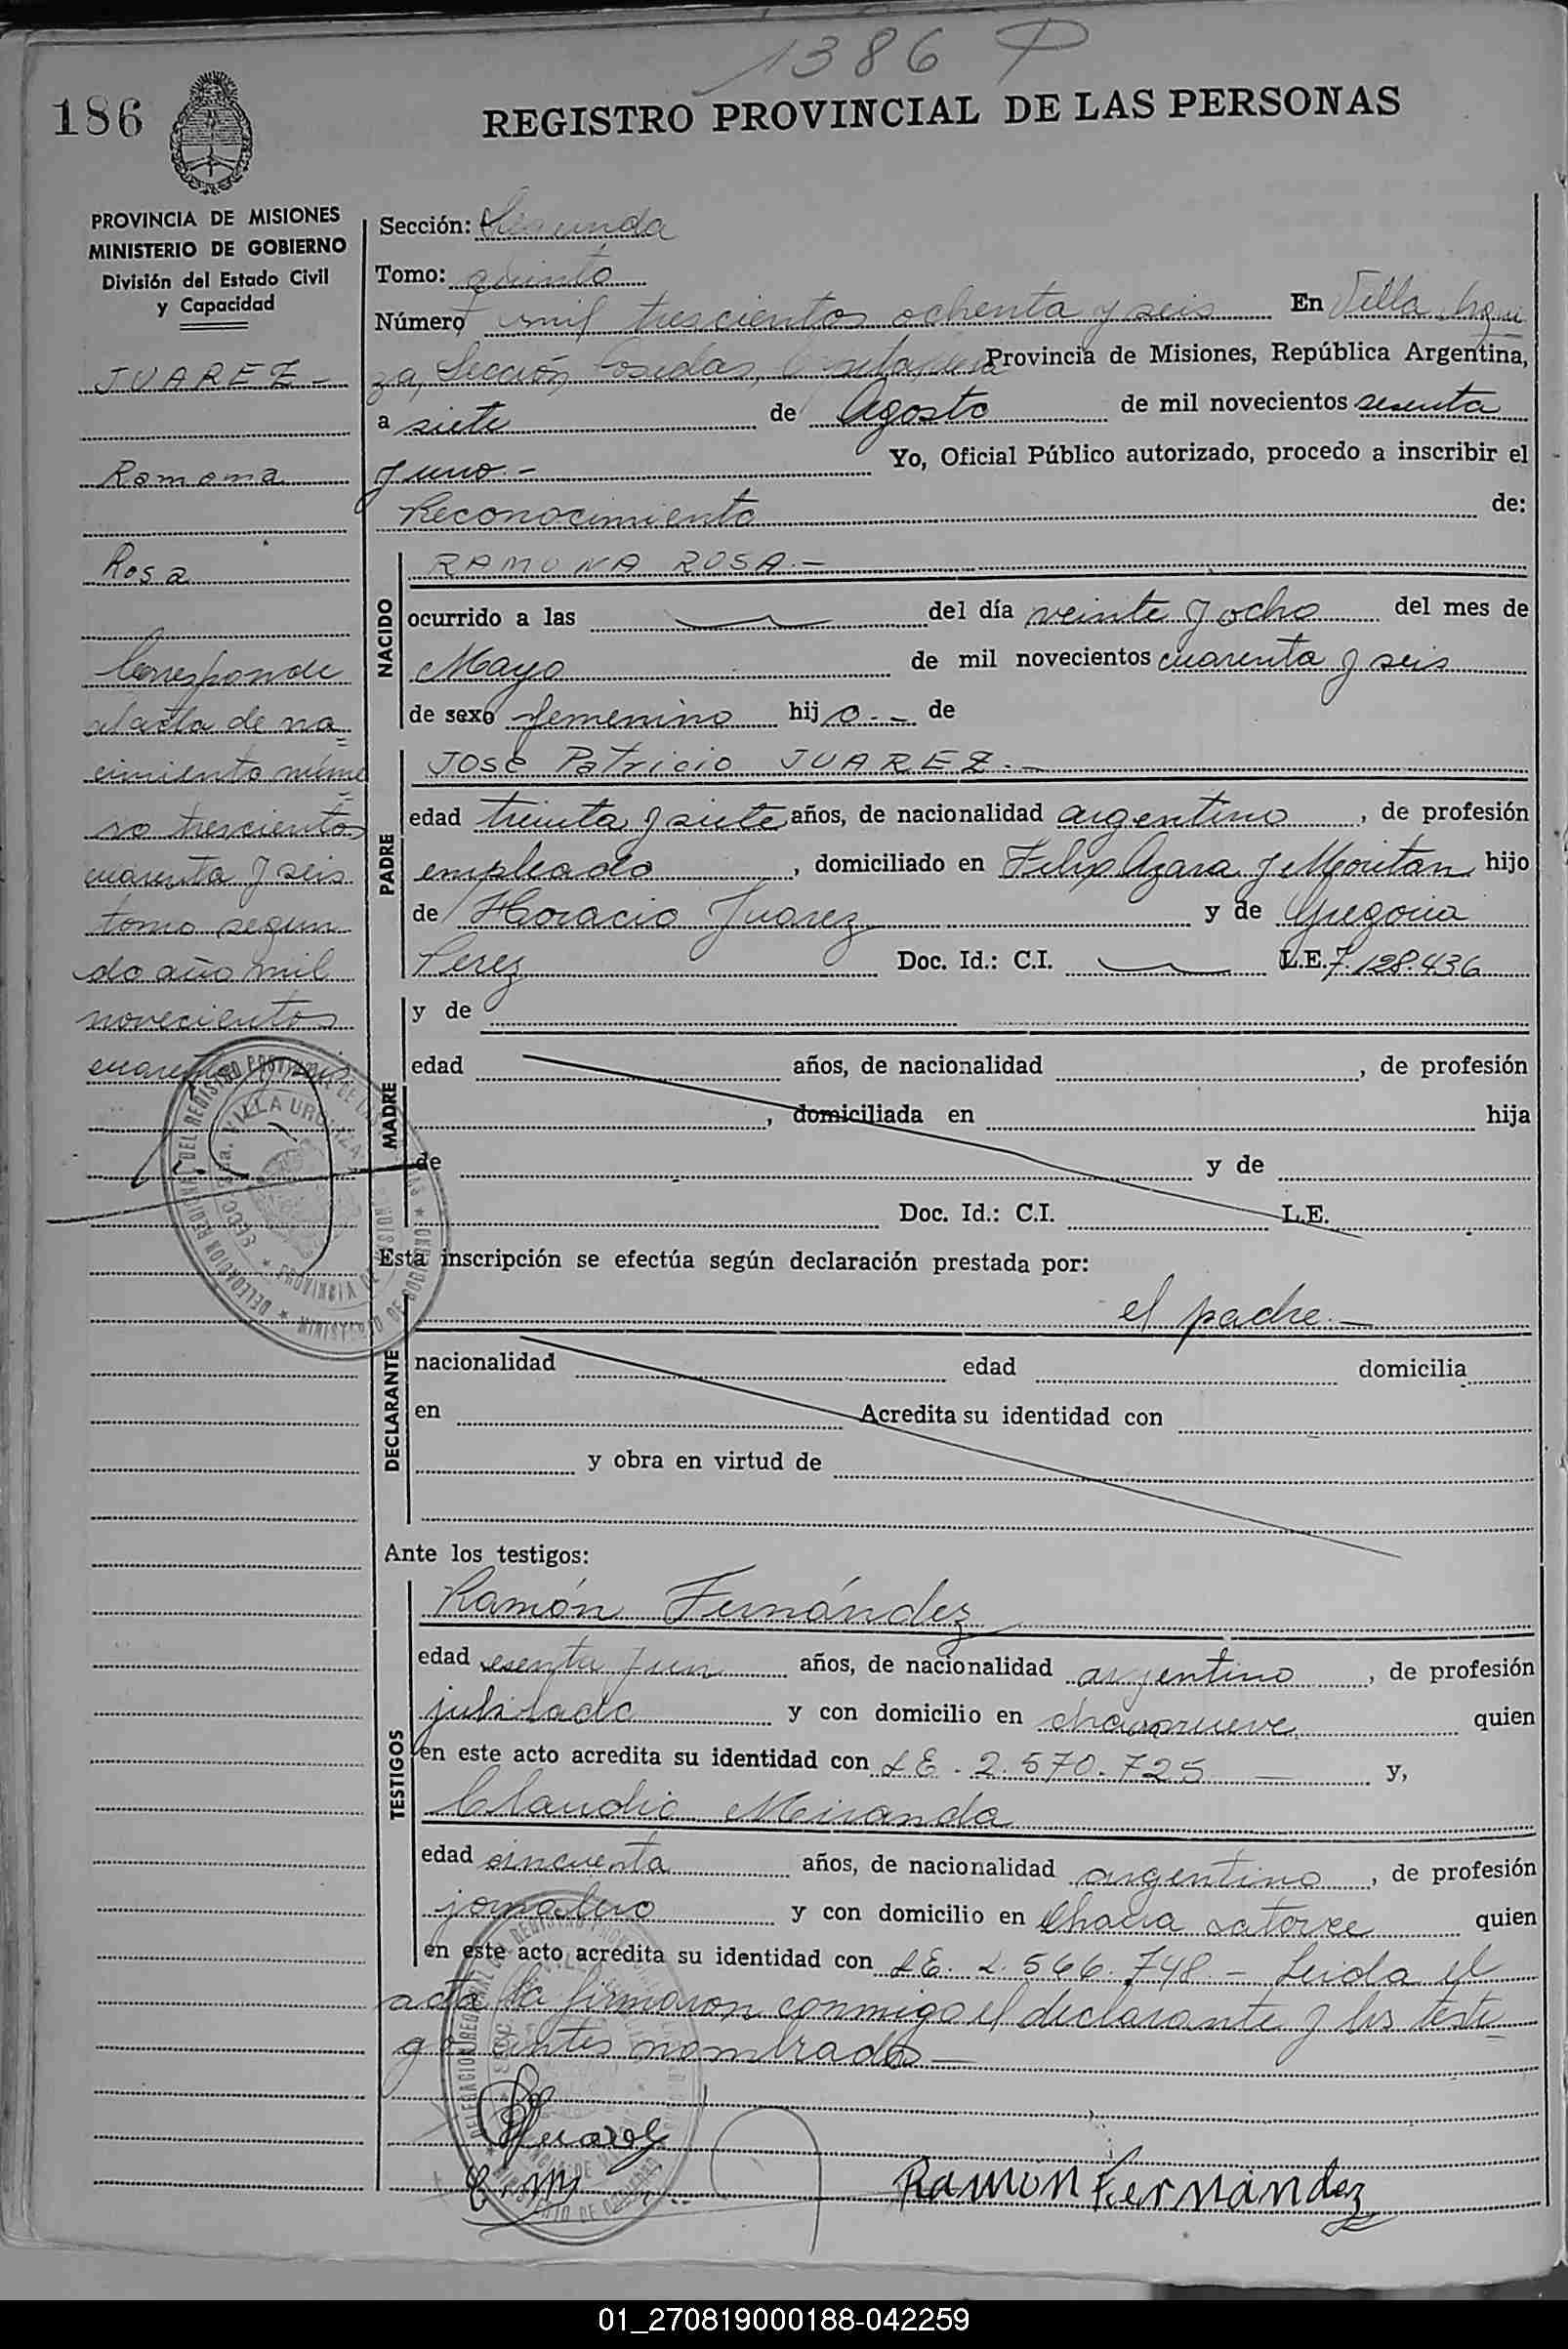 1386
186
REGISTRO PROVINCIAL DE LAS PERSONAS
PROVINCIA DE MISIONES
MINISTERIO DE GOBIERNO
División del Estado Civil
y Capacidad
JUAREZ -
Ramona
Rosa
Corresponde
al acta de na=
cimiento núme=
ro trescientos
cuarenta y seis
tomo segun
do año mil
novecientos
cuarenta y seis
Sección: Segunda
Tomo: quinto
Número mil trescientos ochenta y seis En Villa Urqui
za, Sección Posadas, Provincia de Misiones, República Argentina,
a siete de Agosto de mil novecientos sesenta
y uno.- Yo, Oficial Público autorizado, procedo a inscribir el
Reconocimiento de:
NACIDO
RAMONA ROSA.-
ocurrido a las del día veinte y ocho del mes de
Mayo de mil novecientos cuarenta y seis
de sexo femenino hij o.- de
PADRE
José Patricio JUAREZ.-
edad treinta y siete años, de nacionalidad argentino, de profesión
empleado, domiciliado en Felix Azara y Moritan hijo
de Horacio Juarez y de Gregoria
Perez Doc. Id.: C.I. L.E. 7.128.436
MADRE
y de
edad años, de nacionalidad , de profesión
, domiciliada en hija
de y de
Doc. Id.: C.I. L.E.
Esta inscripción se efectúa según declaración prestada por:
el padre.-
DECLARANTE
nacionalidad edad domicilia
en Acredita su identidad con
y obra en virtud de
Ante los testigos:
TESTIGOS
Ramón Fernández
edad sesenta y un años, de nacionalidad argentino, de profesión
jubilado y con domicilio en quien
en este acto acredita su identidad con LE. 2.570.725 - y,
Claudio Miranda
edad cincuenta años, de nacionalidad argentino, de profesión
jornalero y con domicilio en Chacra catorce quien
en este acto acredita su identidad con LE. 2.566.748 - Leida el
acta la firmaron conmigo el declarante y los testi=
gos antes nombrados -
Juarez
C. M
Ramón Fernández
01_270819000188-042259